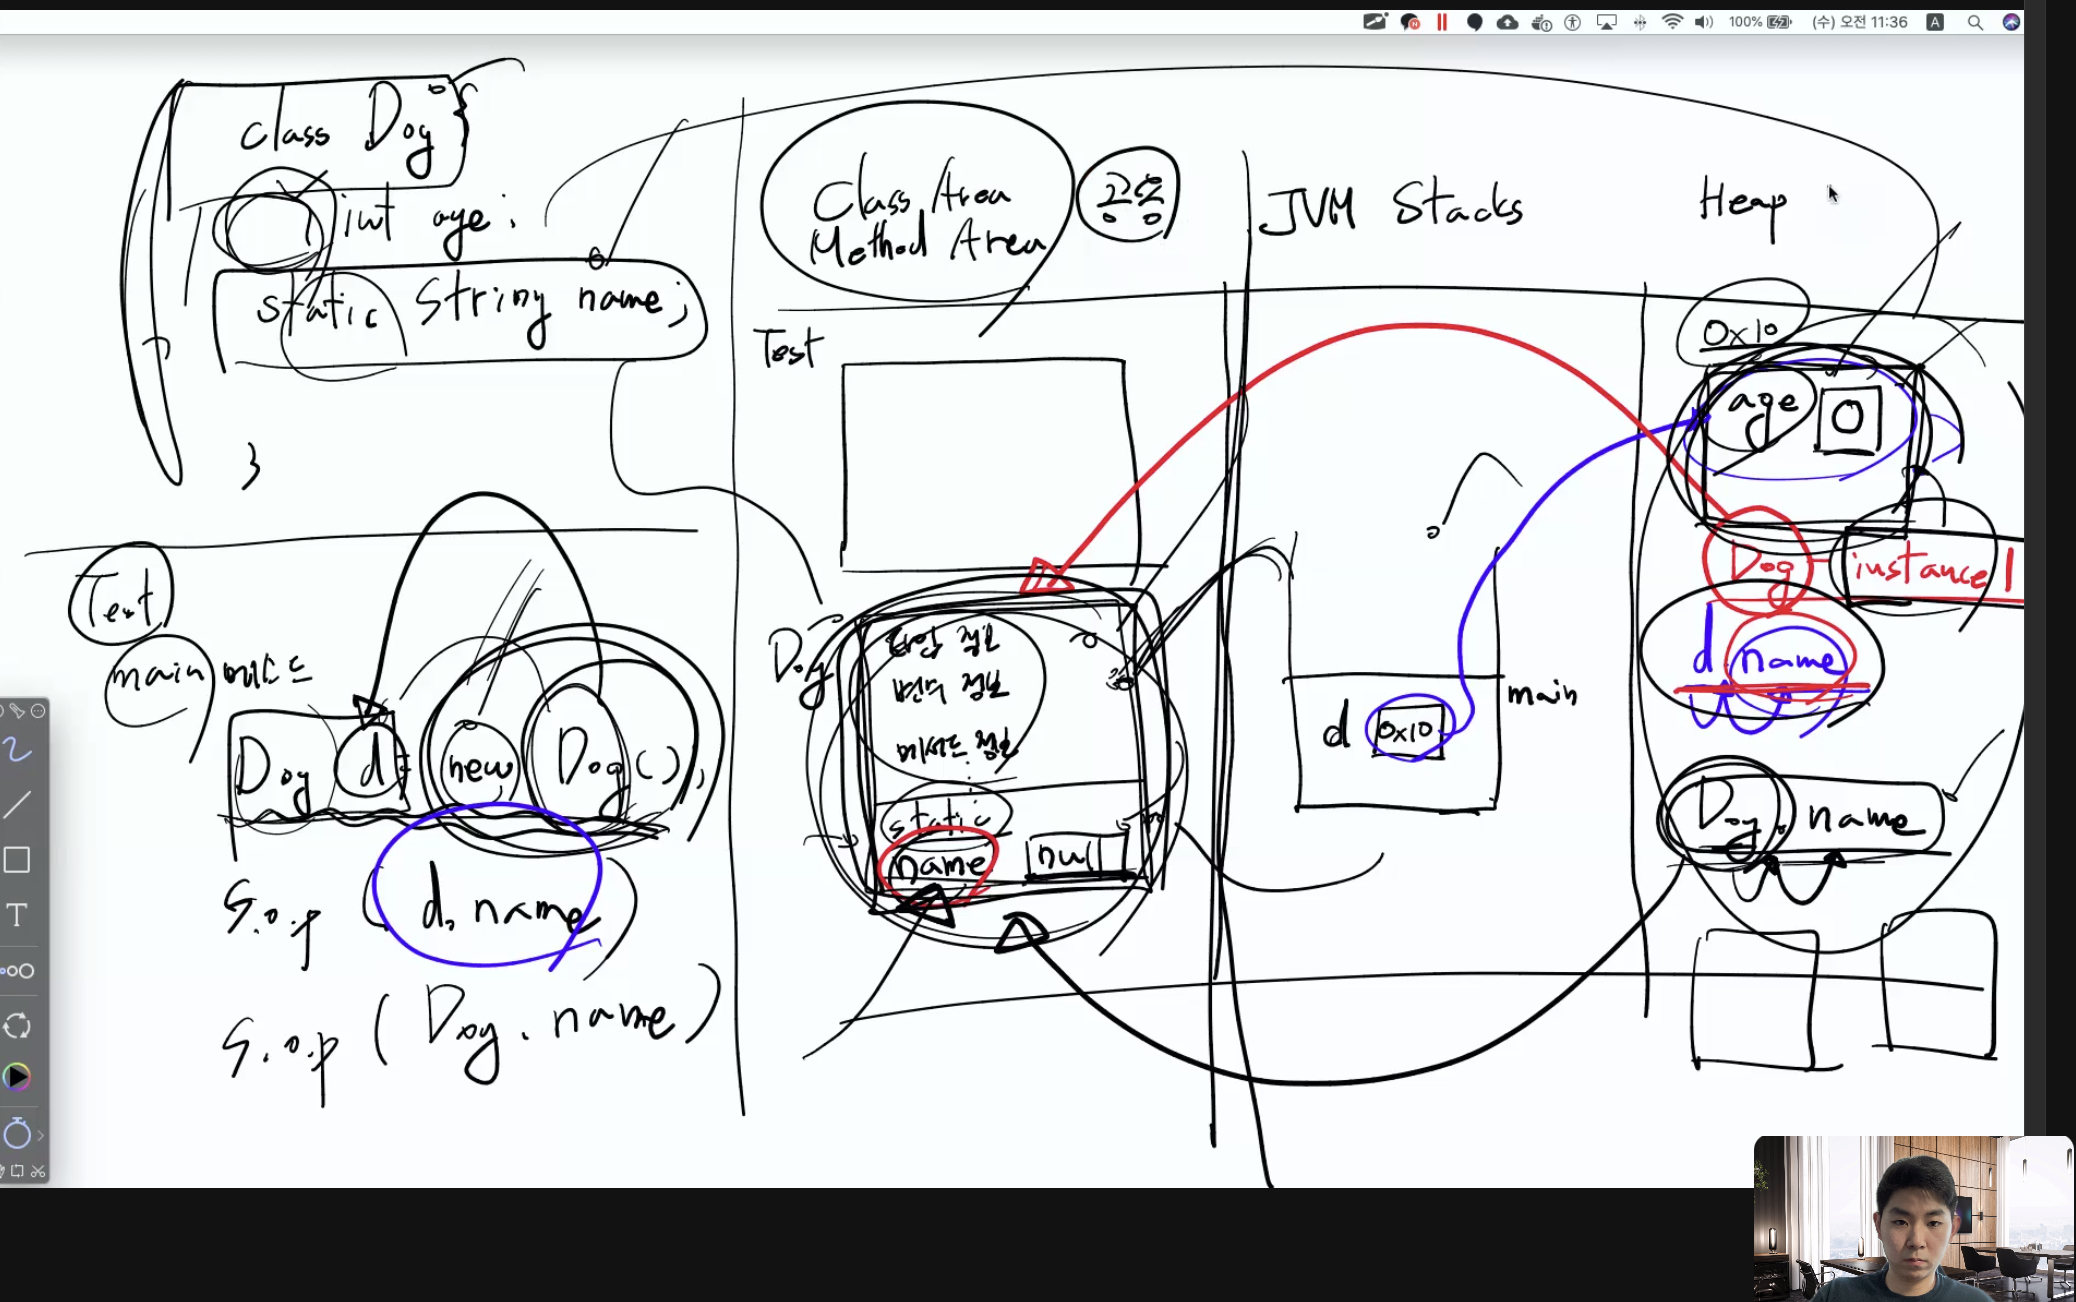 100% (수) 오전 11:36 A
class Dog {
int age;
static String name;
}
Test
main 메소드
Dog d = new Dog();
S.o.p (d.name)
S.o.p (Dog.name)
Class Area
Method Area
공용
JVM Stacks
Heap
Test
Dog
타입 정보
변수 정보
메서드 정보
static
name null
main
d 0x10
0x10
age 0
Dog instance
d name
Dog. name
T